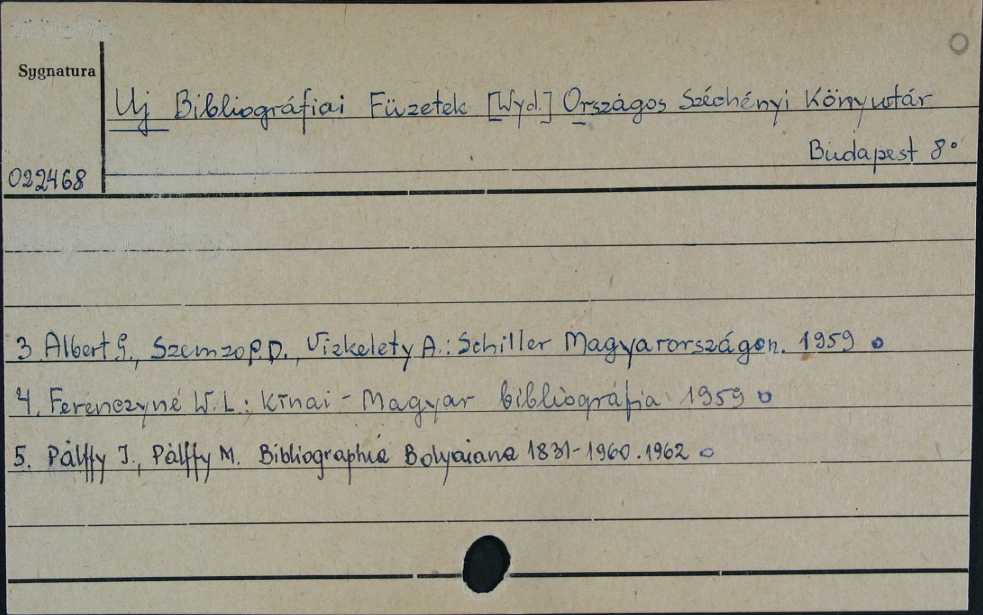 Sygnatura
Uj Bibliográfiai Füzetek [Wyd.] Országos Széchényi Könyvtár
Budapest 8°
022468
3 Albert G., Szemző P.D., Vizkelety A.: Schiller Magyarországon. 1959
4. Ferenczyné W.L.: Kínai - Magyar bibliográfia 1959
5. Pálffy I., Pálffy M. Bibliographia Bolyaiana 1831-1960. 1962